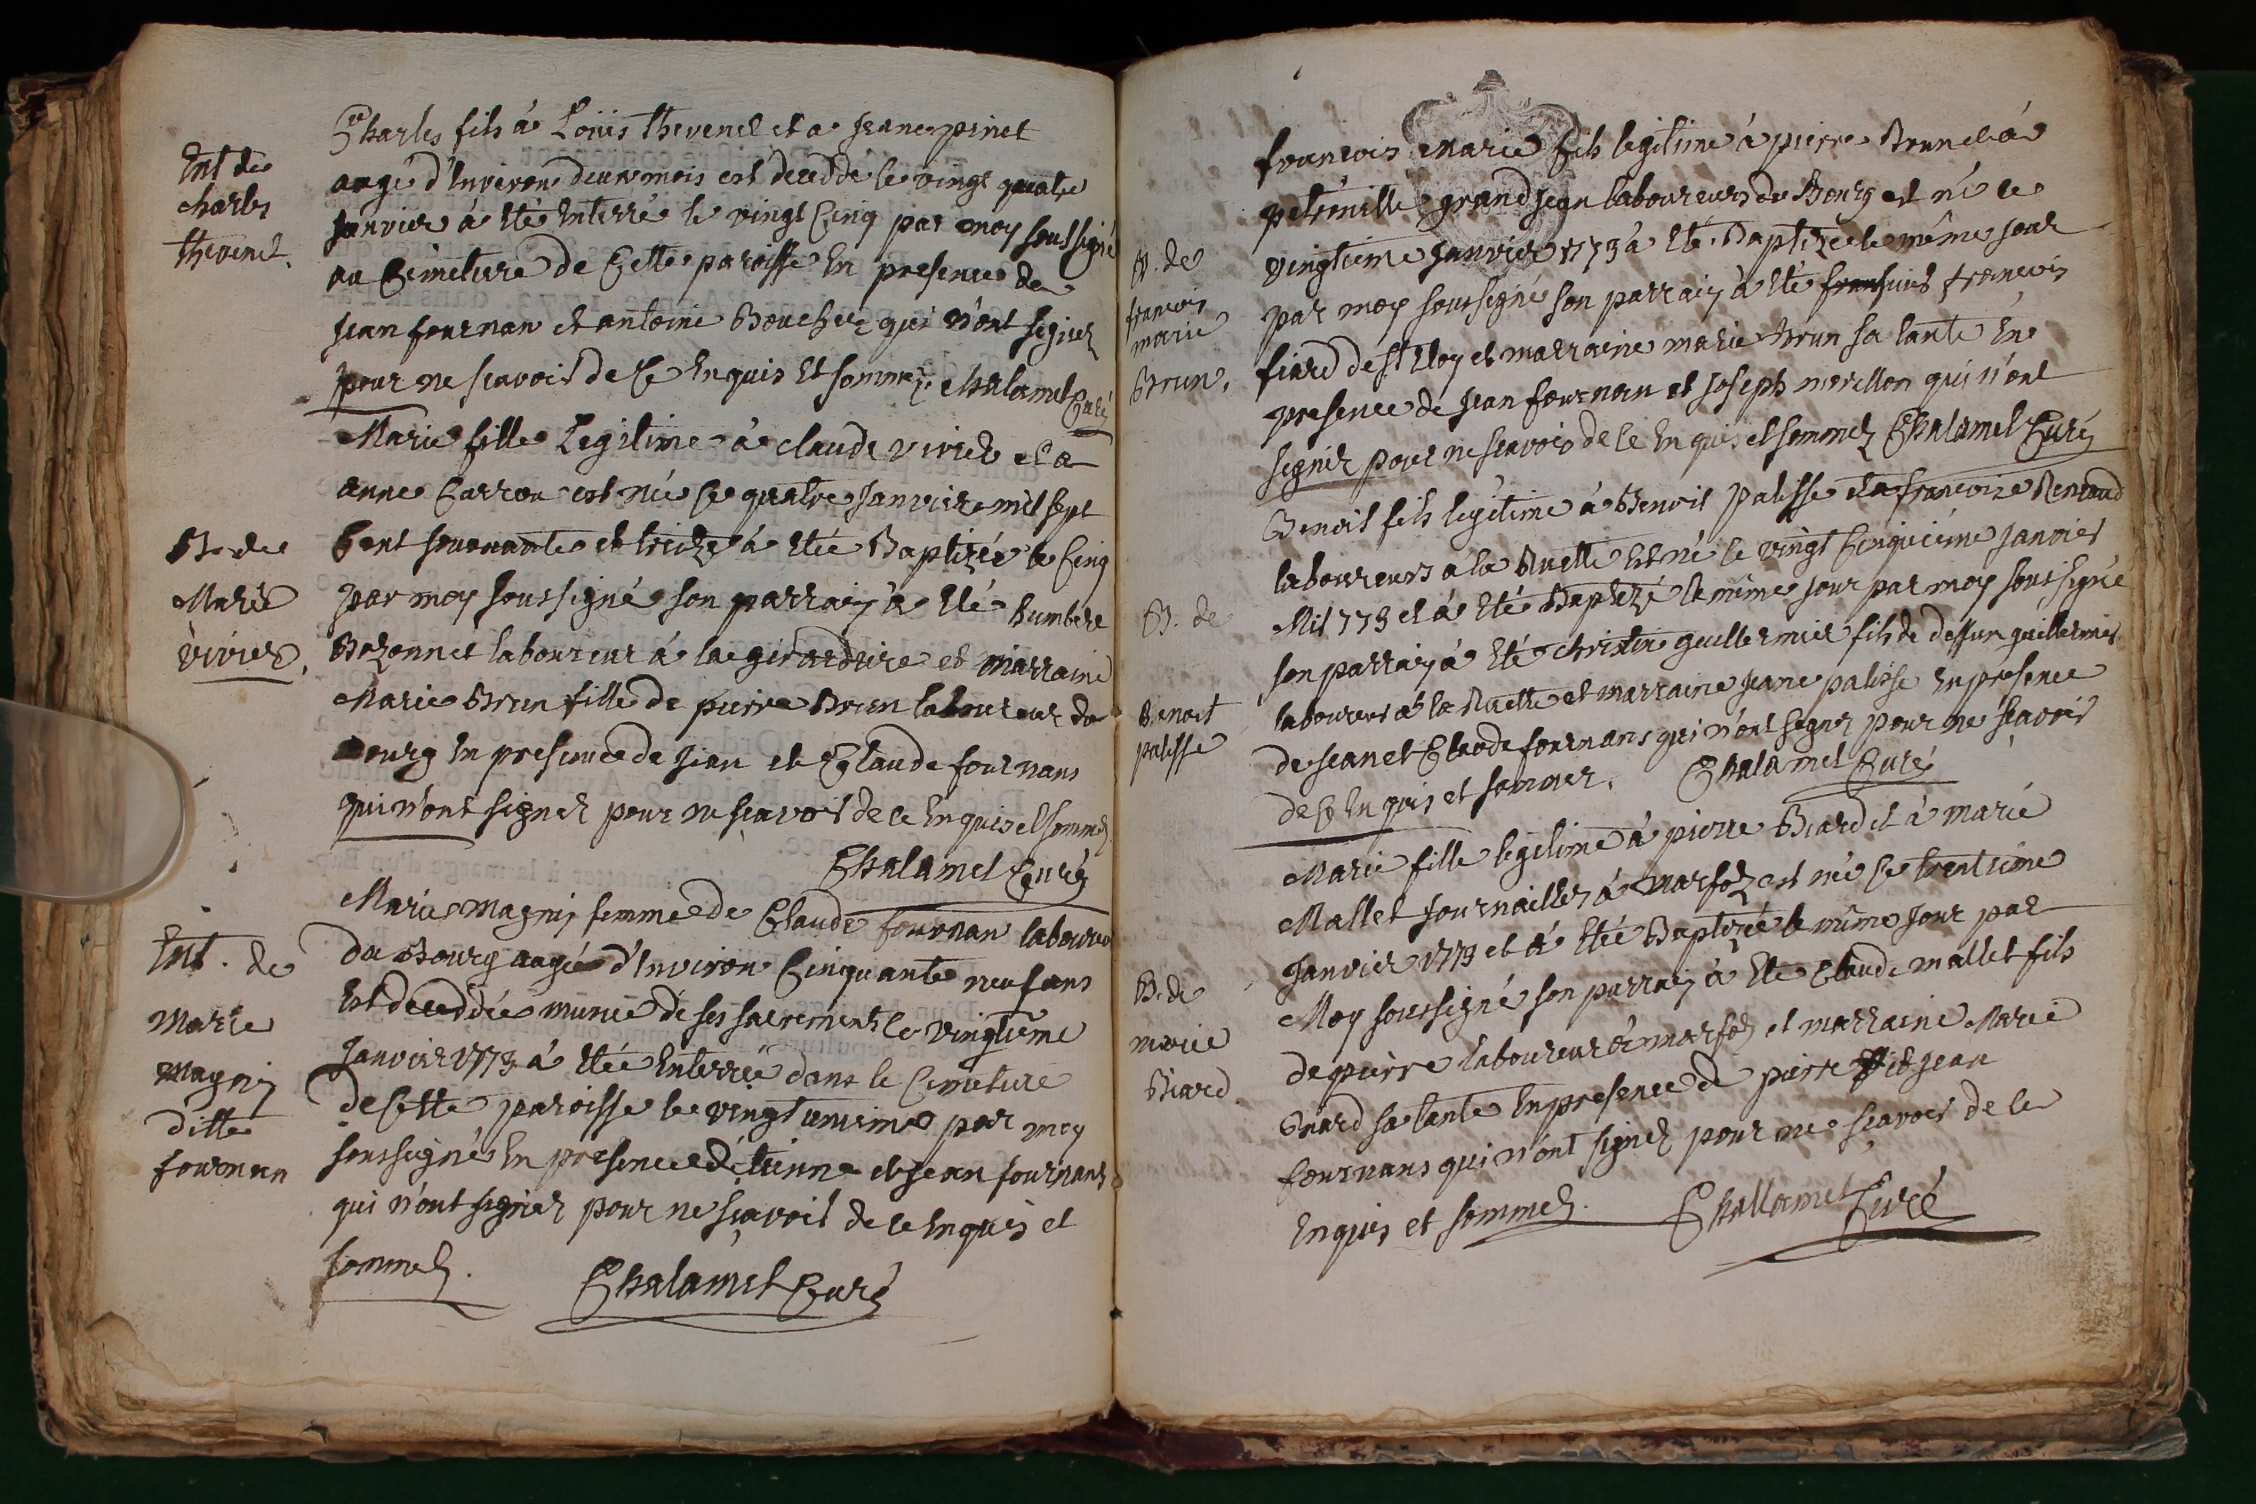 Ent de
Charles
thevenet.
Charles fils à Loüis thevenet et a jeane pinet
aagé d'Environ deux mois est deceddé le vingt quatre
janvier à eté Enterré le vingt Cinq par moy soussigné
au Cemetiere de Cette paroisse En presence de
jean fournan et antoine Boucher qui n'ont signer
pour ne scavoir de Ce Enquis et sommez Chalamel Curé
B. de
Marie
vivier.
Marie fille Legitime à claude vivier et a
anne Carron est née Le quatre Janvier mil sept
Cent souxante et treize à etée Baptizée le Cinq
par moy soussigné son parrain à eté humbert
Bozonnet laboureur à la girardiere et marraine
Marie Brun fille de pierre Brun laboureur du
Bourg En presence de jean et Claude fournans
qui n'ont signer pour ne scavoir de ce Enquis et sommez
Chalamel Curé
Ent. de
Marie
Magnin
ditte
fournan
Marie Magnin femme de Claude fournan laboureur
du Bourg aagée d'Environ Cinquante neuf ans
Est deceddée munie de ses sacrements le vingtieme
Janvier 1773 à etée Enterrée dans le Cimetiere
de Cette paroisse le vingt unieme par moy
soussigné En presence d'étienne et jean fournans
qui n'ont signer pour ne sçavoir de ce Enquis et
sommez.
Chalamel Curé
B. de
francois
marie
Brun.
francois Marie fils legitime à pierre Brun et à
petronille grandjean laboureurs du Bourg est né le
vingtieme Janvier 1773 à eté Baptizé le même jour
par moy soussigné son parrain à eté francois
fiard de st Eloy et marraine marie Brun sa tante En
presence de jean fournan et joseph morellon qui n'ont
signer pour ne scavoir de ce Enquis et sommez Chalamel Curé
B. de
Benoit
palisse
Benoit fils legitime à Benoit palisse et a francoise Renaud
laboureurs à la Ruette est né le vingt Cinquieme janvier
Mil 773 et à eté Baptizé le même jour par moy soussigné
son parrain à eté christin guillermier fils de deffun guillermier
laboureur à la Ruette et marraine jeane palisse En presence
de jean et Claude fournans qui n'ont signer pour ne sçavoir
de Ce Enquis et sommer. Chalamel Curé
B. de
marie
Biard.
Marie fille legitime à pierre Biard et à marie
Mallet journaillers à marfoz est née le trentieme
janvier 1773 et à etée Baptizée le même jour par
Moy soussigné son parrain à eté Claude mallet fils
de pierre laboureur à marfoz et marraine Marie
Biard sa tante En presence de pierre et jean
fournans qui n'ont signez pour ne sçavoir de ce
Enquis et sommez. Challamel Curé